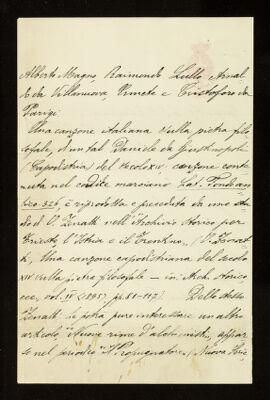 Alberto Magno, Raimondo Lullo, Arnal-
do da Villanuova, Ermete e Cristoforo da
Parigi.
Una canzone italiana sulla pietra filo-
sofale, d'un tal Daniele da Giustinopoli
(Capodistria) del secolo XIV, canzone conte-
nuta nel codice marciano Lat. Fondo an-
tico 326, è riprodotta e preceduta da uno stu-
dio di O. Zenatti nell'"Archivio storico per
Trieste, l'Istria e il Trentino" (O. Zenat-
ti, Una canzone capodistriana del secolo
XIV sulla pietra filosofale - in Arch. storico,
ecc, vol. IV pp. 81-117). Dello stesso
Zenatti le potrà pure interessare un altro
articolo "Nuove rime d'alchimisti", appar-
so nel periodico "Il Propugnatore" (Nuova Serie,